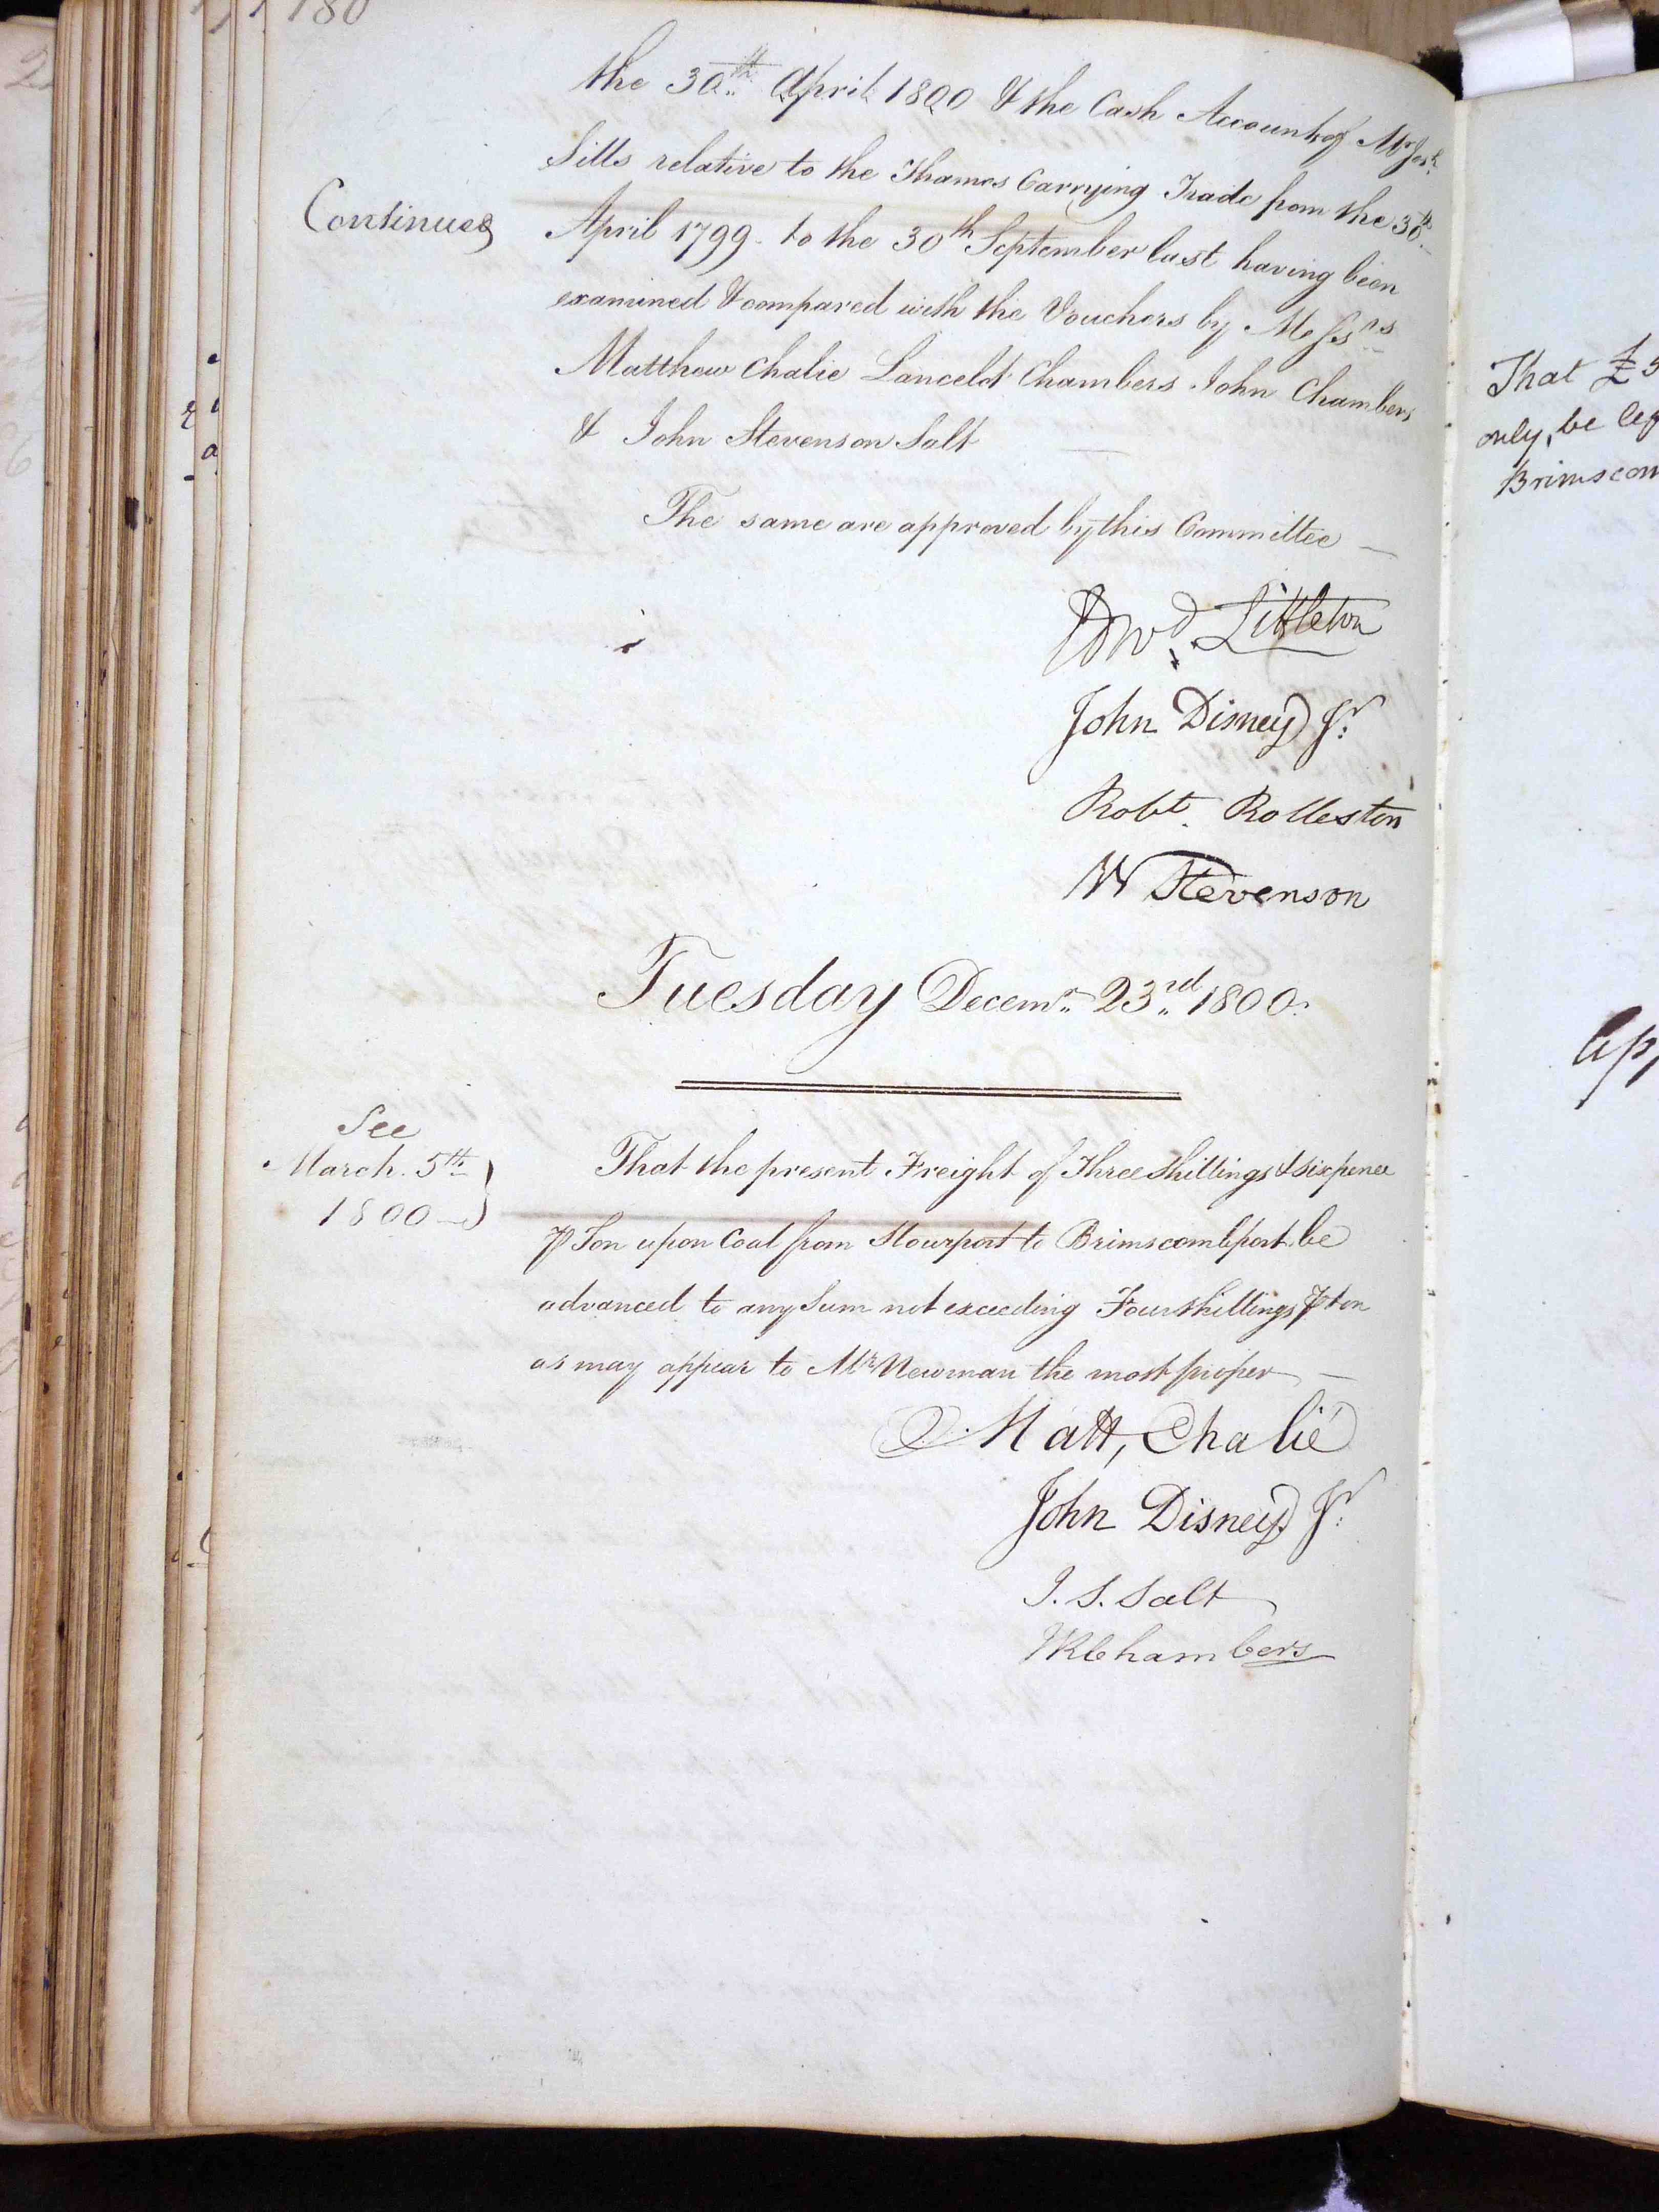 180
the 30th April 1800 & the Cash Account of Mr Josh
Sills relative to the Thames Carrying Trade from the 30th
Continued
April 1799 to the 30th September last having been
examined & compared with the Vouchers by Messrs
Matthew Chalie Lancelot Chambers John Chambers
& John Stevenson Salt
The same are approved by this Committee —
Edwd. Littleton
John Disney Jr:
Robt. Rolleston
W Stevenson
Tuesday Decemr. 23rd 1800.
See
March 5th
1800
That the present Freight of Three Shillings & sixpence
⅌ Ton upon Coal from Stourport to Brimscombport be
advanced to any Sum not exceeding Four shillings ⅌ ton
as may appear to Mr Newman the most proper —
Matt, Chalié
John Disney Jr:
J. S. Salt
Chambers
That £5
only, be
Brimscom